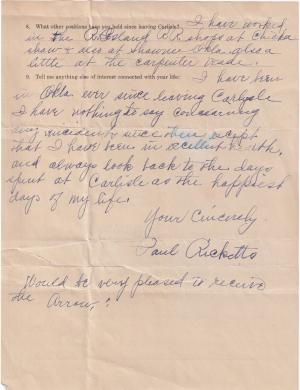 8. What other positions have you held since leaving Carlisle? I have worked
in the Rock Island RR shops at Chicka
shaw + also at Shawnee Okla. also a
little at the carpenter trade.
9. Tell me anything else of interest connected with your life: I have been
in Okla ever since leaving Carlysle
I have nothing to say concerning
any incidents since then except
that I have been in excellent health,
and always look back to the days
spent at Carlisle as the happiest
days of my life.
Your Sincerely.
Paul Ricketts
Would be very pleased to receive
the Arrow.